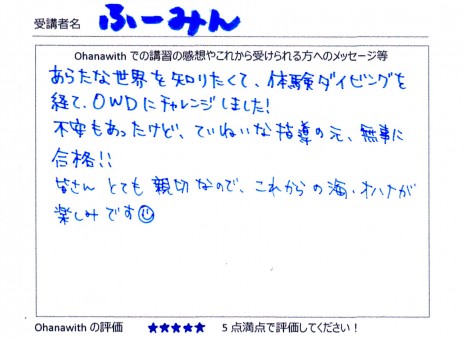 受講者名 ふーみん
Ohanawith での講習の感想やこれから受けられる方へのメッセージ等
あらたな世界を知りたくて、体験ダイビングを
経て、OWDにチャレンジしました!
不安もあったけど、ていねいな指導の元、無事に
合格!!
皆さん とても 親切なので、これからの海、オハナが
楽しみです☺
Ohanawith の評価 ★★★★★ 5 点満点で評価してください!